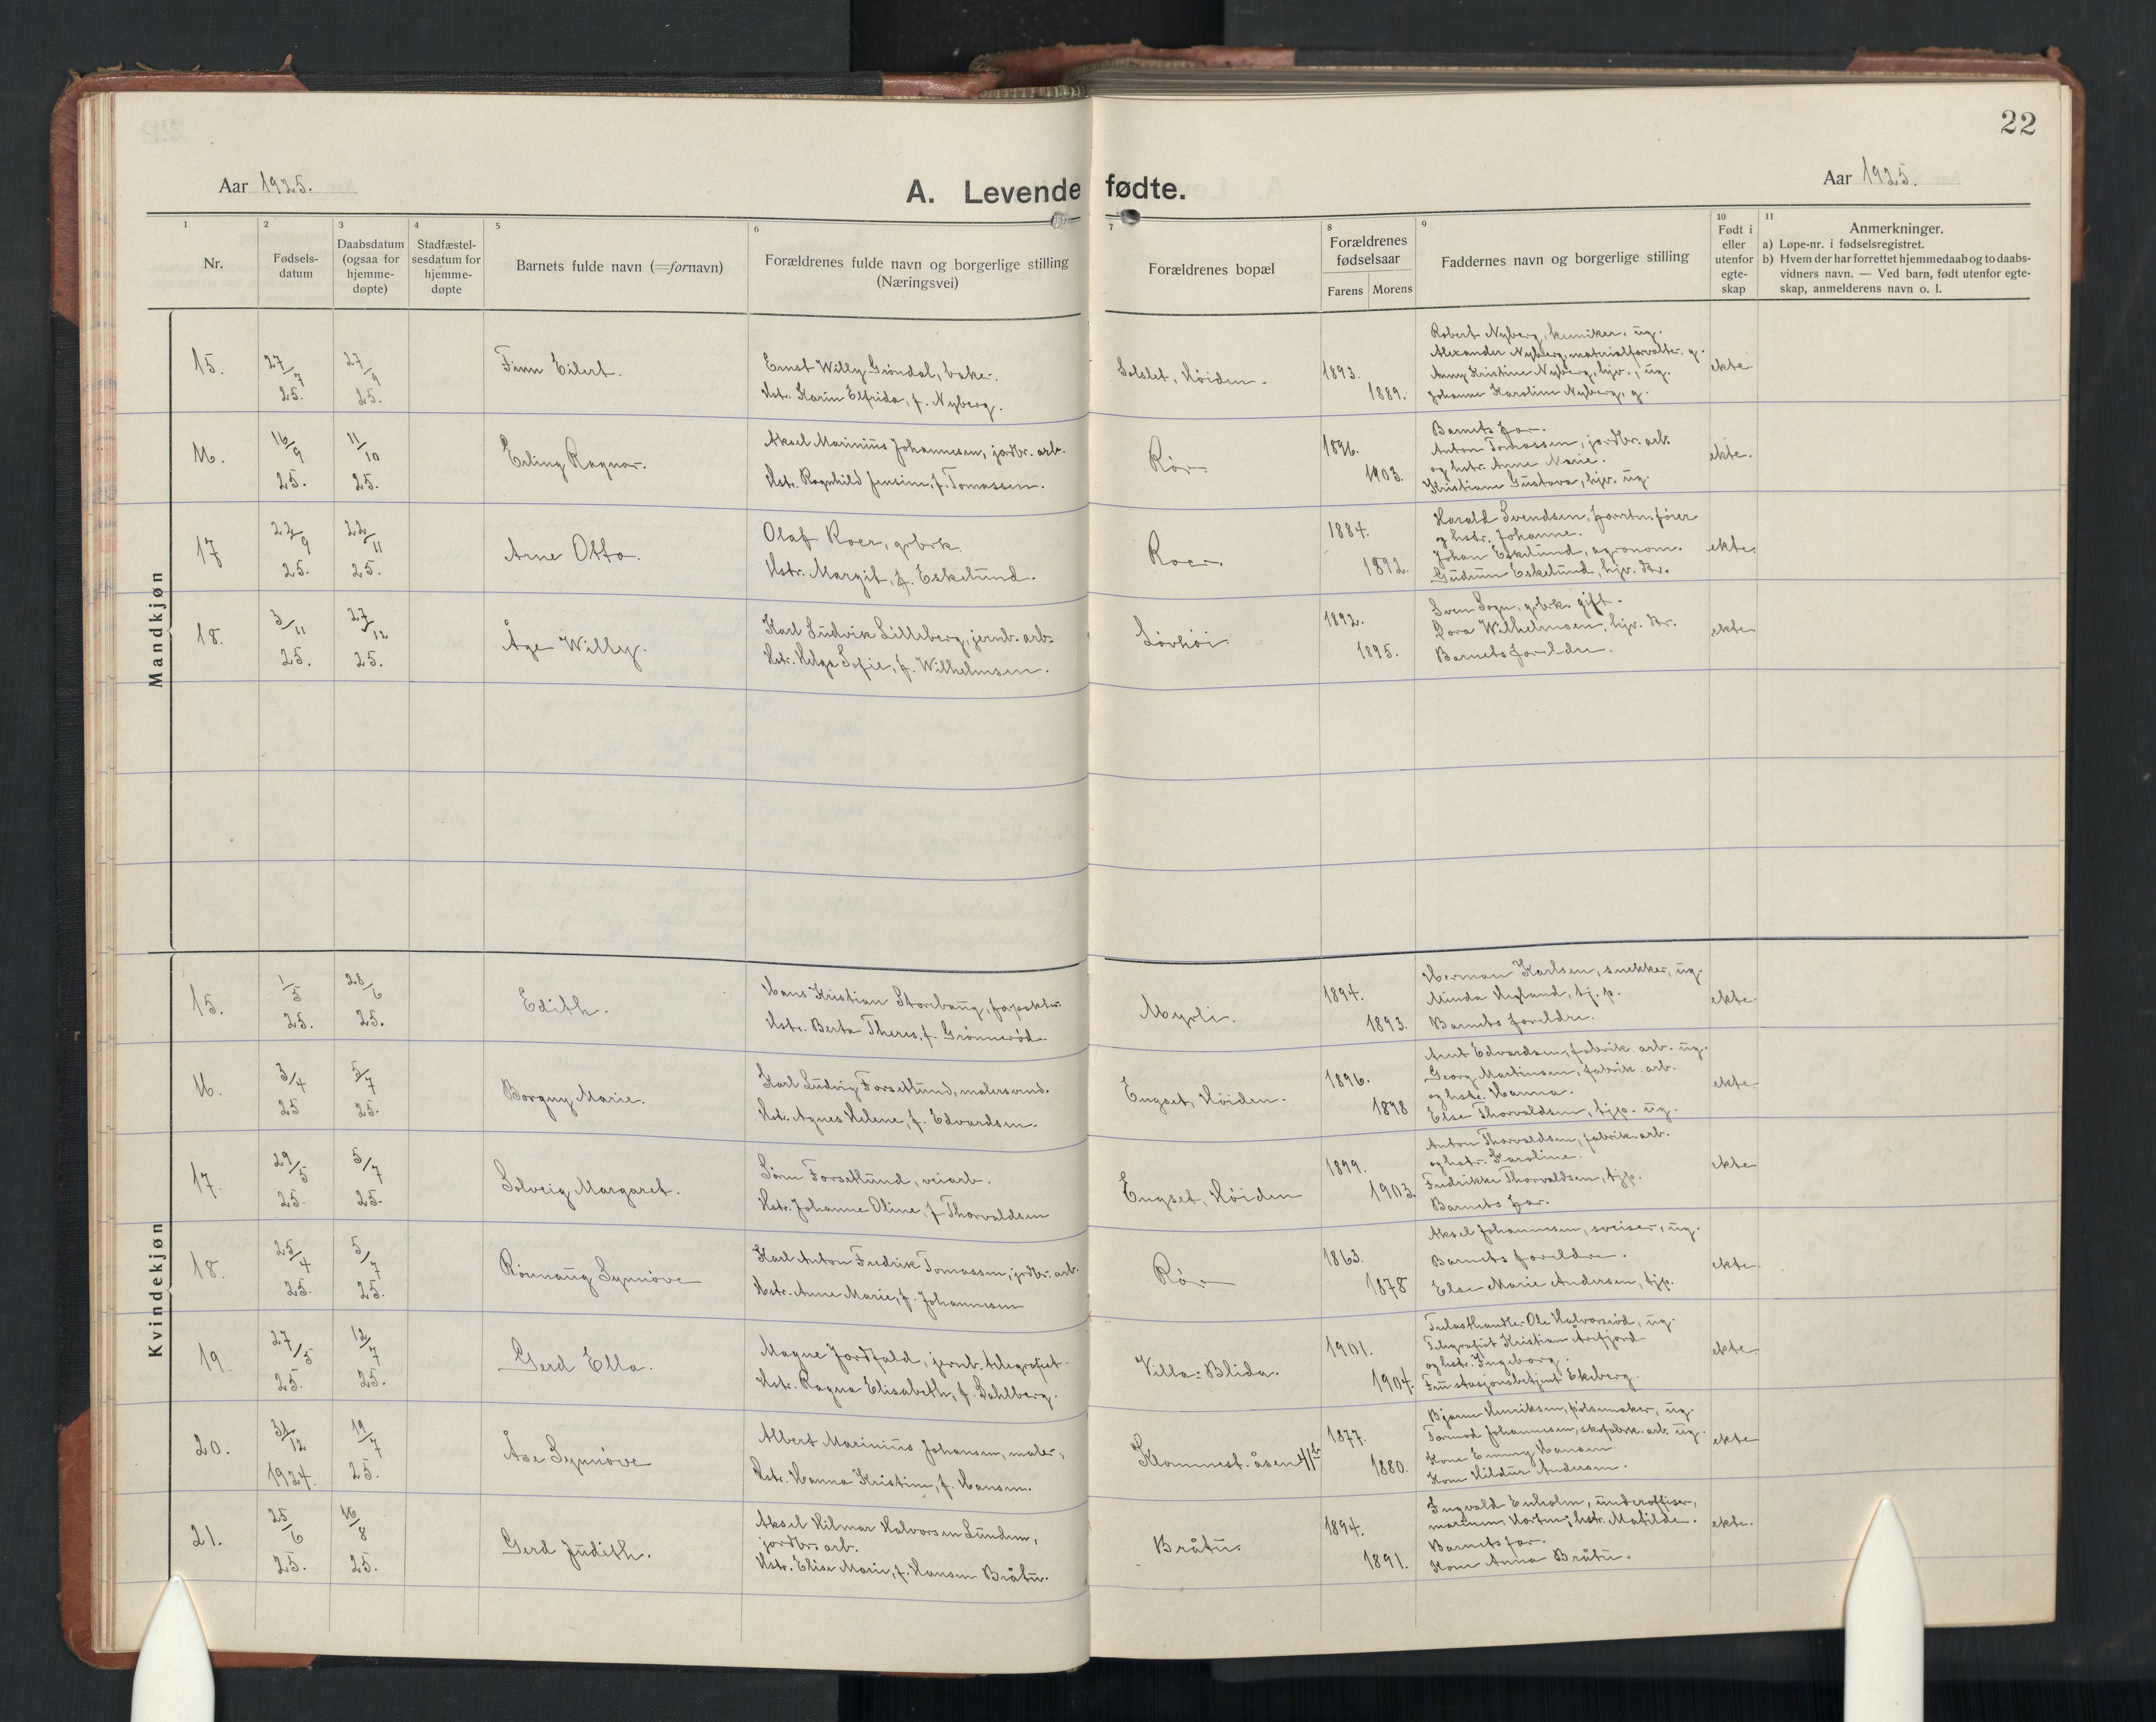 22
Aar 1925.
A. Levende fødte.
Aar 1925.
1 2 3 4 5 6 7 8 9 10 11
Nr.
Fødsels-
datum
Daabsdatum
(ogsaa for
hjemme-
døpte)
Stadfæstel-
sesdatum for
hjemme-
døpte
Barnets fulde navn (=fornavn)
Forældrenes fulde navn og borgerlige stilling
(Næringsvei)
Forældrenes bopæl
Forældrenes
fødselsaar
Farens Morens
Faddernes navn og borgerlige stilling
Født i
eller
utenfor
egte-
skap
Anmerkninger.
a) Løpe-nr. i fødselsregistret.
b) Hvem der har forrettet hjemmedaab og to daabs-
vidners navn. — Ved barn, født utenfor egte-
skap, anmelderens navn o. l.
Mandkjøn
15.
27/7
25.
27/9
25.
Finn Eilert.
Ernst Willy Grøndal, baker.
Hstr. Karin Elfrida, f. Nyberg.
Solslet, Høiden.
1893.
1889.
Robert Nyberg, kemiker, ug.
Alexander Nyberg, materialforvalter. g.
Anny Kristine Nyberg, hjv., ug.
Johanne Karoline Nyberg, g.
ekte.
16.
16/9
25.
11/10
25.
Erling Ragnar.
Aksel Marinius Johannesen, jordbr. arb.
Hstr. Ragnhild Jensine, f. Tomassen.
Rør
1896.
1903.
Barnets far.
Anton Tomassen, jordbr. arb.
og hstr. Anne Marie.
Kristiane Gustava, hjv. ug.
ekte.
17
22/9
25.
22/11
25.
Arne Otto.
Olaf Roer, grbrk.
Hstr. Margit, f. Eskelund.
Roer.
1884.
1892.
Harald Svendsen, forretn. fører
og hstr. Johanne.
Johan Eskelund, agronom.
Gudrun Eskelund, hjv. dtr.
ekte.
18.
3/11
25.
27/12
25.
Åge Willy.
Karl Ludvik Lilleberg, jernb. arb.
Hstr. Helga Sofie, f. Wilhelmsen.
Løvhøi
1892.
1895.
Sven Sogn, grbrk. gift.
Dora Wilhelmsen, hjv. dtr.
Barnets foreldre.
ekte
Kvindekjøn
15.
1/5
25.
28/6
25.
Edith.
Hans Kristian Storebaug, forpakter.
Hstr. Berta Theres, f. Grønnerød.
Myrli.
1894.
1893.
Herman Karlsen, snekker, ug.
Minda Hegland, tj. p.
Barnets foreldre.
ekte.
16.
3/4
25
5/7
25.
Borgny Marie.
Karl Ludvig Forsetlund, malersvend.
Hstr. Agnes Helene, f. Edvardsen.
Engset, Høiden.
1896.
1898
Arnt Edvardsen, fabrik. arb. ug.
Georg Martinsen, fabrik. arb.
og hstr. Hanna.
Else Thorvaldsen, tjp. ug.
ekte
17.
29/5
25.
5/7
25.
Solveig Margaret.
Søren Forsetlund, veiarb.
Hstr. Johanne Oline, f. Thorvaldsen
Engset, Høiden
1899.
1903.
Anton Thorvaldsen, fabrik. arb.
og hstr. Karoline.
Fredrikke Thorvaldsen, tjp.
Barnets far.
ekte
18.
25/4
25.
5/7
25.
Rønnaug Synnøve
Karl Anton Fredrik Tomassen, jrdbr. arb.
Hstr. Anne Marie, f. Johannesen
Rør
1863.
1878
Aksel Johannesen, sveiser, ug.
Barnets foreldre.
Else Marie Andersen, tjp.
ekte
19.
27/5
25.
12/7
25.
Gerd Ella.
Magne Jordfald, jernb. telegrafist.
Hstr. Ragna Elisabeth, f. Dahlberg.
Villa: Blida.
1901.
1904.
Trelasthandler Ole Halvorsrød, ug.
Telegrafist Kristian Arefjord
og hstr. Ingeborg.
Fru stasjonsbetjent Ekeberg.
ekte
20.
31/12
1924.
19/7
25.
Åse Synnøve
Albert Marinius Johansen, maler,
Hstr. Hanna Kristine, f. Hansen.
1877.
1880.
Bjarne Henriksen, pølsemaker, ug.
Tormod Johannesen, skofabrk. arb. ug.
Kone Emmy Hansen
Kone Hildur Andersen.
ekte
21.
25/6
25.
16/8
25.
Gerd Judith.
Aksel Hilmar Halvorsen Lunden,
jordbr. arb.
Hstr. Elise Marie, f. Hansen Bråtu.
Bråtu.
1894.
1891.
Ingvald Enholm, underoffiser,
marinen Horten; hstr. Matilde.
Barnets far.
Kone Anna Bråtu.
ekte.